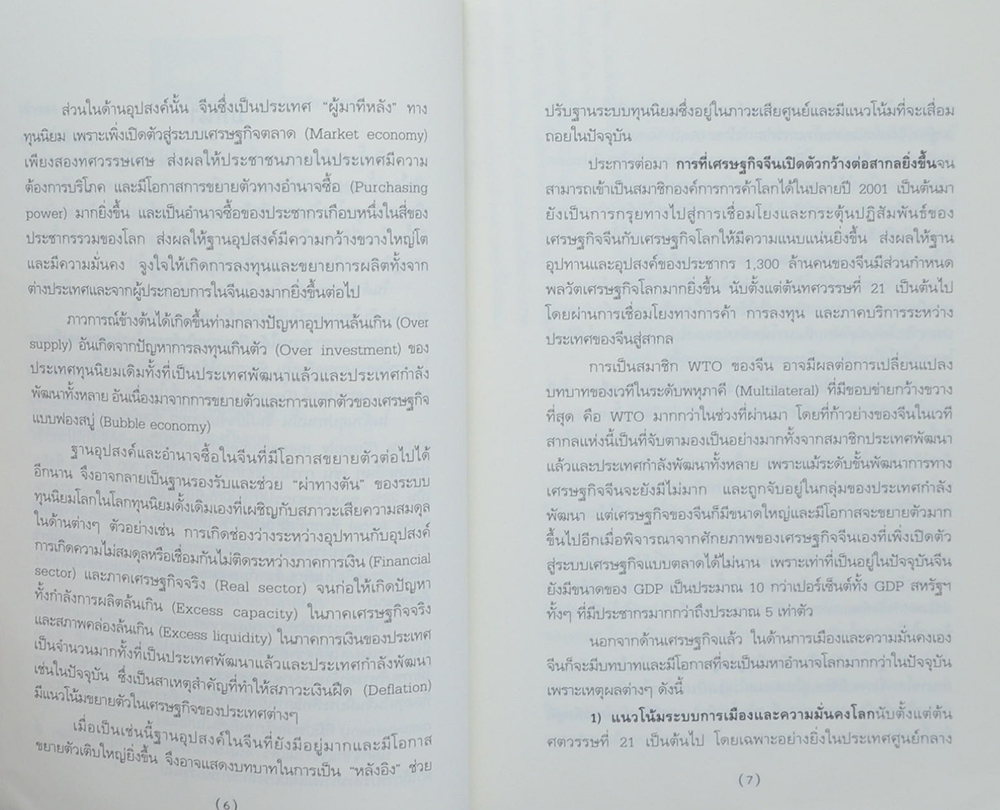 ส่วนในด้านอุปสงค์นั้น จีนซึ่งเป็นประเทศ "ผู้มาทีหลัง" ทาง
ทุนนิยม เพราะเพิ่งเปิดตัวสู่ระบบเศรษฐกิจตลาด (Market economy)
เพียงสองทศวรรษเศษ ส่งผลให้ประชาชนภายในประเทศมีความ
ต้องการบริโภค และมีโอกาสการขยายตัวทางอำนาจซื้อ (Purchasing
power) มากยิ่งขึ้น และเป็นอำนาจซื้อของประชากรเกือบหนึ่งในสี่ของ
ประชากรรวมของโลก ส่งผลให้ฐานอุปสงค์มีความกว้างขวางใหญ่โต
และมีความมั่นคง จูงใจให้เกิดการลงทุนและขยายการผลิตทั้งจาก
ต่างประเทศและจากผู้ประกอบการในจีนเองมากยิ่งขึ้นต่อไป
ภาวการณ์ข้างต้นได้เกิดขึ้นท่ามกลางปัญหาอุปทานล้นเกิน (Over
supply) อันเกิดจากปัญหาการลงทุนเกินตัว (Over investment) ของ
ประเทศทุนนิยมเดิมทั้งที่เป็นประเทศพัฒนาแล้วและประเทศกำลัง
พัฒนาทั้งหลาย อันเนื่องมาจากการขยายตัวและการแตกตัวของเศรษฐกิจ
แบบฟองสบู่ (Bubble economy)
ฐานอุปสงค์และอำนาจซื้อในจีนที่มีโอกาสขยายตัวต่อไปได้
อีกนาน จึงอาจกลายเป็นฐานรองรับและช่วย "ผ่าทางตัน" ของระบบ
ทุนนิยมโลกในโลกทุนนิยมดั้งเดิมเองที่เผชิญกับสภาวะเสียความสมดุล
ในด้านต่างๆ ตัวอย่างเช่น การเกิดช่องว่างระหว่างอุปทานกับอุปสงค์
การเกิดความไม่สมดุลหรือเชื่อมกันไม่ติดระหว่างภาคการเงิน (Financial
sector) และภาคเศรษฐกิจจริง (Real sector) จนก่อให้เกิดปัญหา
ทั้งกำลังการผลิตล้นเกิน (Excess capacity) ในภาคเศรษฐกิจจริง
และสภาพคล่องล้นเกิน (Excess liquidity) ในภาคการเงินของประเทศ
เป็นจำนวนมากทั้งที่เป็นประเทศพัฒนาแล้วและประเทศกำลังพัฒนา
เช่นในปัจจุบัน ซึ่งเป็นสาเหตุสำคัญที่ทำให้สภาวะเงินฝืด (Deflation)
มีแนวโน้มขยายตัวในเศรษฐกิจของประเทศต่างๆ
เมื่อเป็นเช่นนี้ฐานอุปสงค์ในจีนที่ยังมีอยู่มากและมีโอกาส
ขยายตัวเติบใหญ่ยิ่งขึ้น จึงอาจแสดงบทบาทในการเป็น "หลังอิง" ช่วย
(6)
ปรับฐานระบบทุนนิยมซึ่งอยู่ในภาวะเสียศูนย์และมีแนวโน้มที่จะเสื่อม
ถอยในปัจจุบัน
ประการต่อมา การที่เศรษฐกิจจีนเปิดตัวกว้างต่อสากลยิ่งขึ้นจน
สามารถเข้าเป็นสมาชิกองค์การการค้าโลกได้ในปลายปี 2001 เป็นต้นมา
ยังเป็นการกรุยทางไปสู่การเชื่อมโยงและกระตุ้นปฏิสัมพันธ์ของ
เศรษฐกิจจีนกับเศรษฐกิจโลกให้มีความแนบแน่นยิ่งขึ้น ส่งผลให้ฐาน
อุปทานและอุปสงค์ของประชากร 1,300 ล้านคนของจีนมีส่วนกำหนด
พลวัตเศรษฐกิจโลกมากยิ่งขึ้น นับตั้งแต่ต้นทศวรรษที่ 21 เป็นต้นไป
โดยผ่านการเชื่อมโยงทางการค้า การลงทุน และภาคบริการระหว่าง
ประเทศของจีนสู่สากล
การเป็นสมาชิก WTO ของจีน อาจมีผลต่อการเปลี่ยนแปลง
บทบาทของเวทีในระดับพหุภาคี (Multilateral) ที่มีขอบข่ายกว้างขวาง
ที่สุด คือ WTO มากกว่าในช่วงที่ผ่านมา โดยที่ก้าวย่างของจีนในเวที
สากลแห่งนี้เป็นที่จับตามองเป็นอย่างมากทั้งจากสมาชิกประเทศพัฒนา
แล้วและประเทศกำลังพัฒนาทั้งหลาย เพราะแม้ระดับขั้นพัฒนาการทาง
เศรษฐกิจจีนจะยังมีไม่มาก และถูกจับอยู่ในกลุ่มของประเทศกำลัง
พัฒนา แต่เศรษฐกิจของจีนก็มีขนาดใหญ่และมีโอกาสจะขยายตัวมาก
ขึ้นไปอีกเมื่อพิจารณาจากศักยภาพของเศรษฐกิจจีนเองที่เพิ่งเปิดตัว
สู่ระบบเศรษฐกิจแบบตลาดได้ไม่นาน เพราะเท่าที่เป็นอยู่ในปัจจุบันจีน
ยังมีขนาดของ GDP เป็นประมาณ 10 กว่าเปอร์เซ็นต์ทั้ง GDP สหรัฐฯ
ทั้งๆ ที่มีประชากรมากกว่าถึงประมาณ 5 เท่าตัว
นอกจากด้านเศรษฐกิจแล้ว ในด้านการเมืองและความมั่นคงเอง
จีนก็จะมีบทบาทและมีโอกาสที่จะเป็นมหาอำนาจโลกมากกว่าในปัจจุบัน
เพราะเหตุผลต่างๆ ดังนี้
1) แนวโน้มระบบการเมืองและความมั่นคงโลกนับตั้งแต่ต้น
ศตวรรษที่ 21 เป็นต้นไป โดยเฉพาะอย่างยิ่งในประเทศศูนย์กลาง
(7)